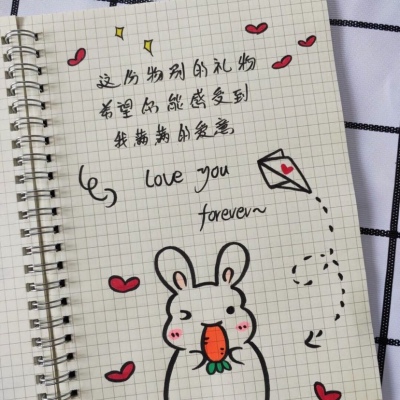 这份特别的礼物
希望你能感受到
我满满的爱意
Love you
forever~